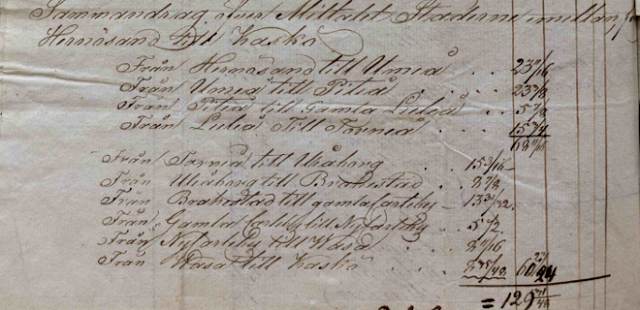 Sammandrag öfver Miltalet Städerne emellan, från
Hernösand till Kaskö
Från Hernösand till Umeå . . 23 9/16
Från Umeå till Piteå . . . 23 7/8
Från Piteå till Gamla Luleå . . 5 7/8
Från Luleå till Torneå . . . 15 3/4
68
Från Torneå till Uleåborg . 15
Från Uleåborg till Brahestad . 8 7/8
Från Brahestad till gamla Carleby 13 /32
Från Gamla Carleby till Ny Carleby 5 1/2
Från Ny Carleby till Wasa . 8 /16
Från Wasa till Kaskö . 8 /48 60
= 129